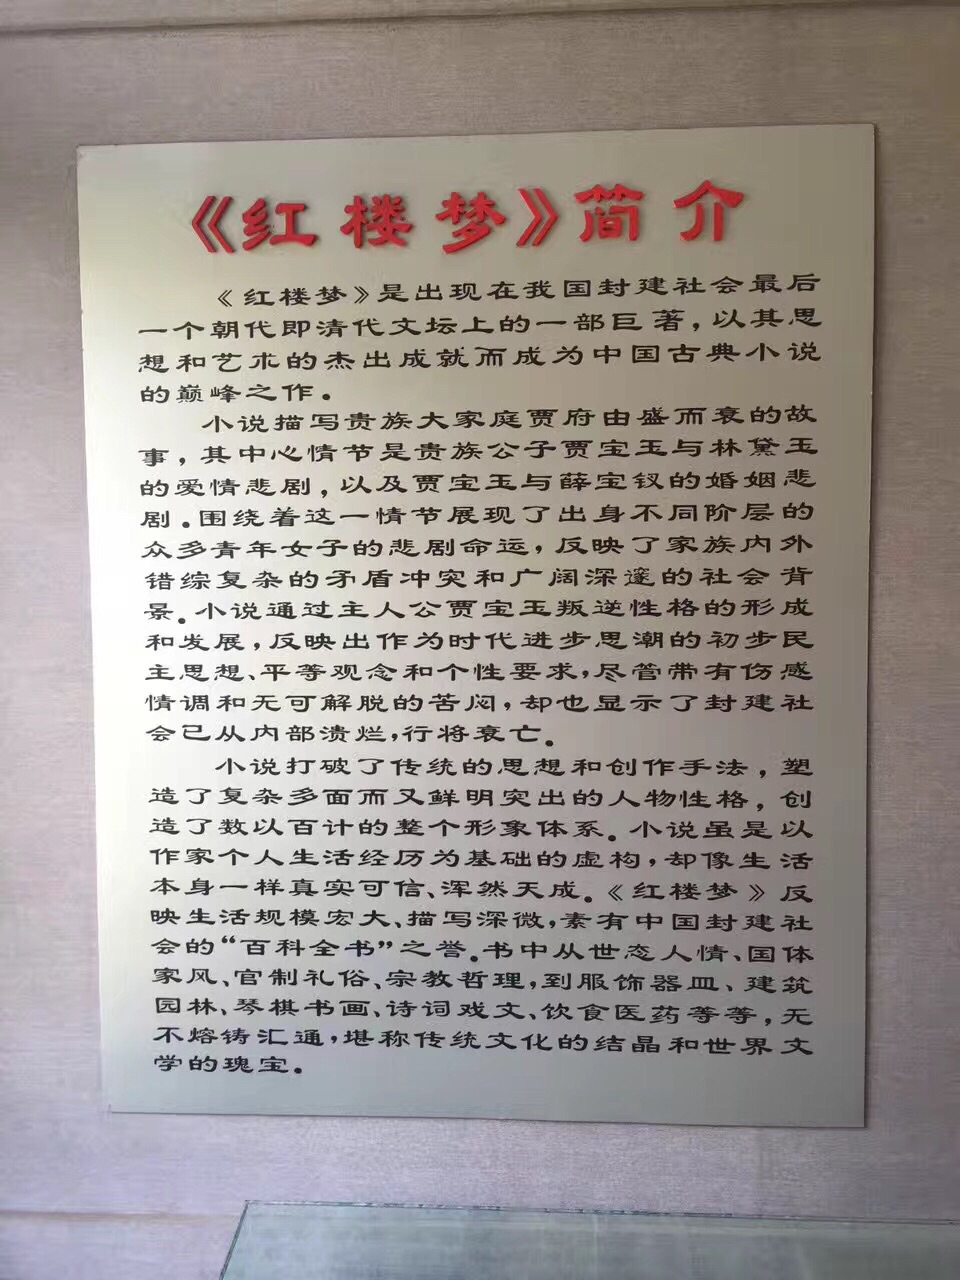 《红楼梦》简介
《红楼梦》是出现在我国封建社会最后
一个朝代即清代文坛上的一部巨著，以其思
想和艺术的杰出成就而成为中国古典小说
的巅峰之作.
小说描写贵族大家庭贾府由盛而衰的故
事，其中心情节是贵族公子贾宝玉与林黛玉
的爱情悲剧，以及贾宝玉与薛宝钗的婚姻悲
剧.围绕着这一情节展现了出身不同阶层的
众多青年女子的悲剧命运，反映了家族内外
错综复杂的矛盾冲突和广阔深邃的社会背
景.小说通过主人公贾宝玉叛逆性格的形成
和发展，反映出作为时代进步思潮的初步民
主思想、平等观念和个性要求，尽管带有伤感
情调和无可解脱的苦闷，却也显示了封建社
会已从内部溃烂，行将衰亡.
小说打破了传统的思想和创作手法，塑
造了复杂多面而又鲜明突出的人物性格，创
造了数以百计的整个形象体系.小说虽是以
作家个人生活经历为基础的虚构，却像生活
本身一样真实可信、浑然天成.《红楼梦》反
映生活规模宏大、描写深微，素有中国封建社
会的“百科全书”之誉.书中从世态人情、国体
家风、官制礼俗、宗教哲理，到服饰器皿、建筑
园林、琴棋书画、诗词戏文、饮食医药等等，无
不熔铸汇通，堪称传统文化的结晶和世界文
学的瑰宝.